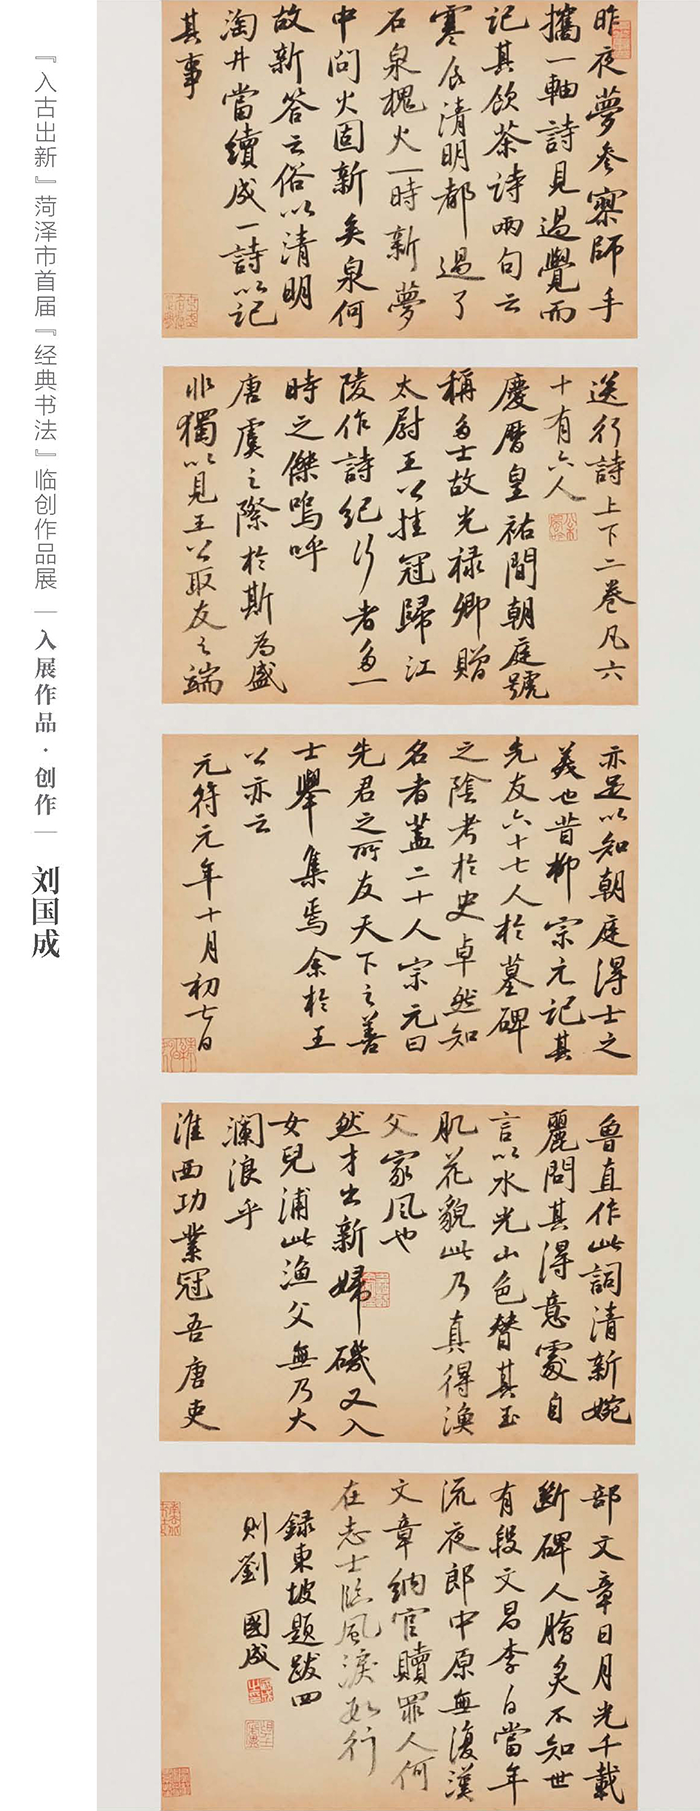 『入古出新』菏泽市首届『经典书法』临创作品展｜入展作品·创作｜刘国成
昨夜夢参寥師手
攜一軸詩見過覺而
記其飲茶詩兩句云
寒食清明都過了
石泉槐火一時新夢
中問火固新矣泉何
故新答云俗以清明
淘井當續成一詩以記
其事
送行詩上下二卷凡六
十有六人
慶曆皇祐間朝庭號
稱多士故光禄卿贈
太尉王公掛冠歸江
陵作詩紀行者多一
時之傑嗚呼
唐虞之際於斯為盛
非獨以見王公取友之端
亦足以知朝庭得士之
美也昔柳宗元記其
先友六十七人於墓碑
之陰考於史卓然知
名者蓋二十人宗元曰
先君之所友天下之善
士舉集焉余於王
公亦云
元符元年十月初七日
魯直作此詞清新婉
麗問其得意處自
言以水光山色替其玉
肌花貌此乃真得漁
父家风也
然才出新婦磯又入
女兒浦此渔父無乃大
瀾浪乎
淮西功業冠吾唐吏
部文章日月光千載
斷碑人膾炙不知世
有段文昌李白當年
流夜郎中原無復漢
文章納官贖罪人何
在志士臨風淚如行
録東坡題跋四
则劉國成